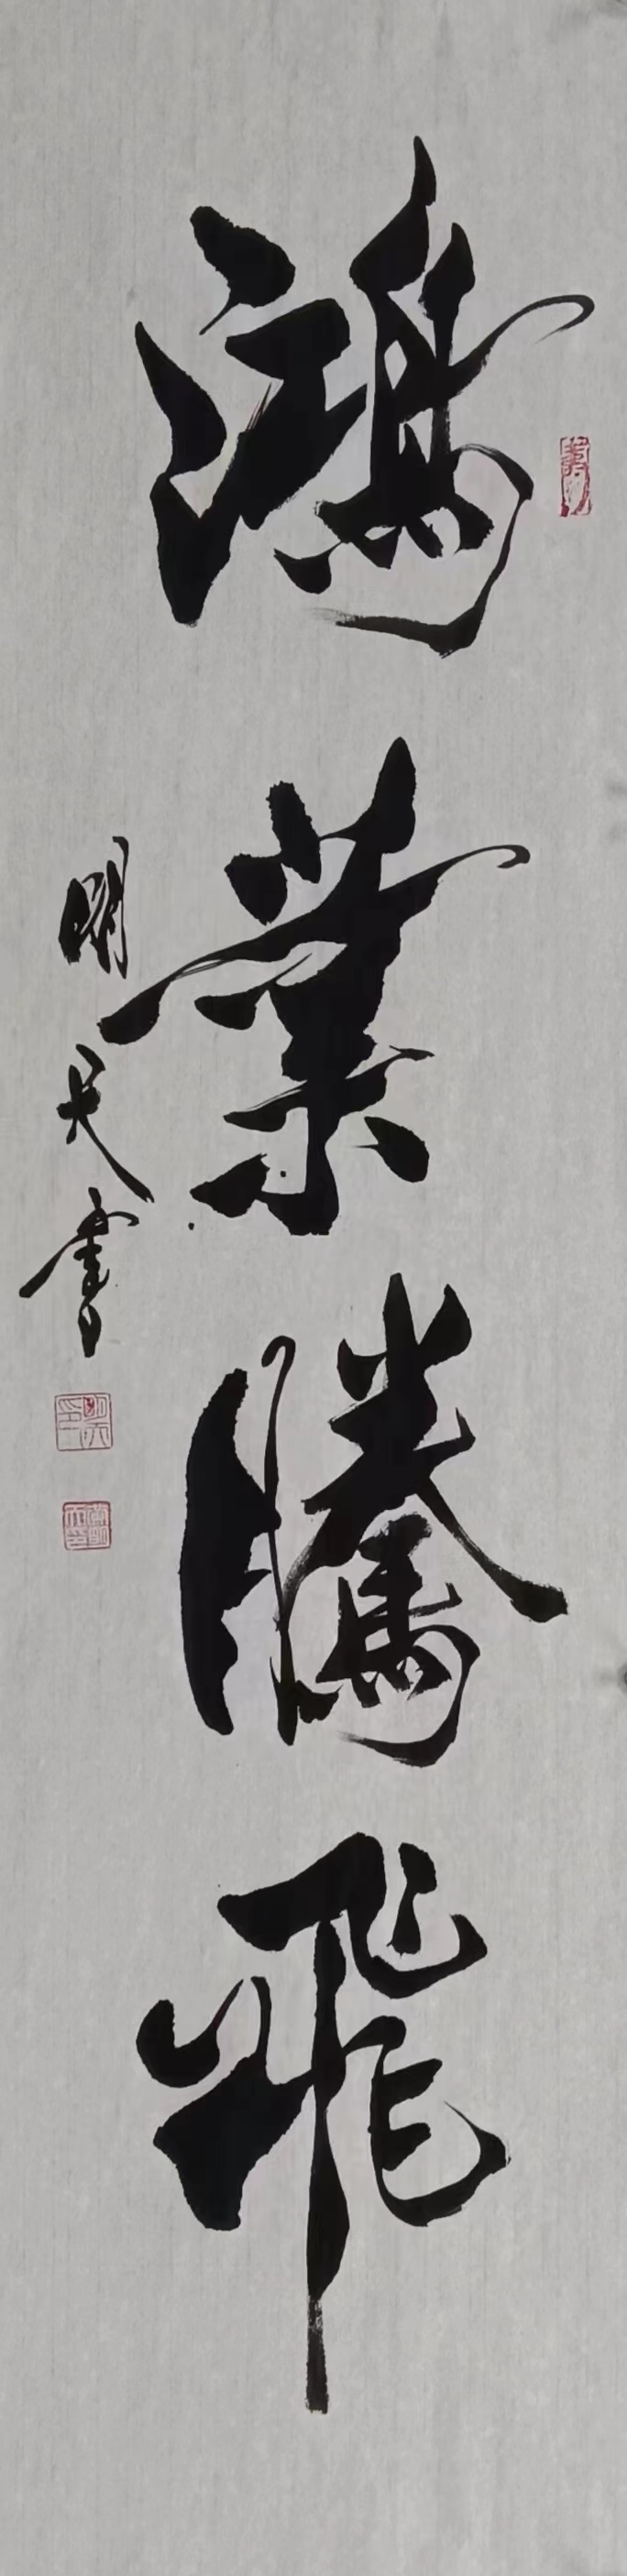 鴻業騰飛
明天書